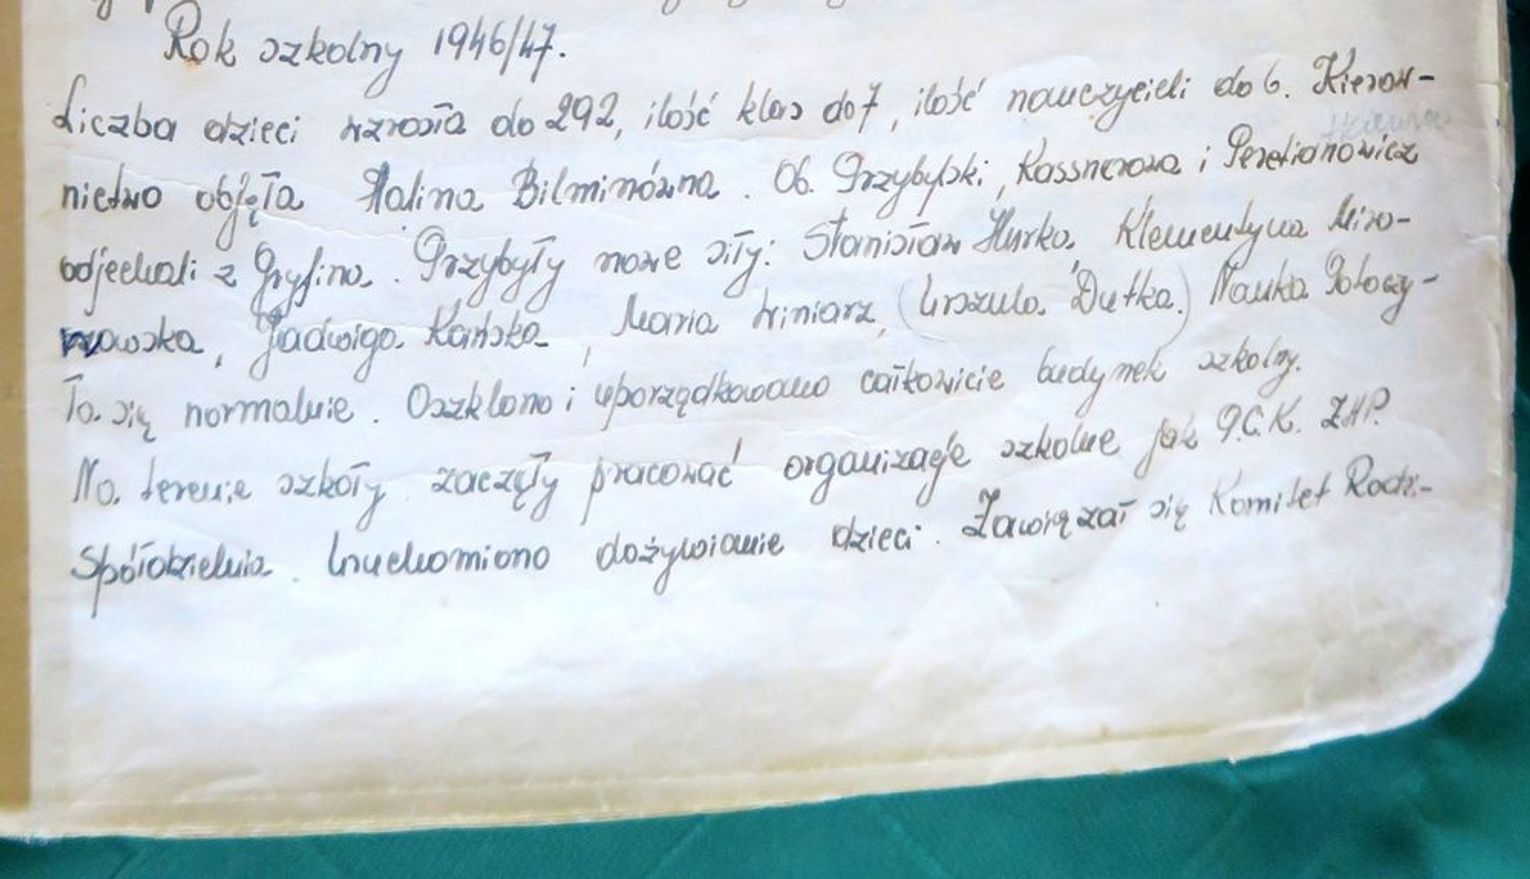 Rok szkolny 1946/47.
Liczba dzieci wzrosła do 292, ilość klas do 7, ilość nauczycieli do 6. Kierow-
nictwo objęła Halina Bilminówna. Ob. Przybylski, Kassnerowa i Peretianowicz
odjechali z Gryfina. Przybyły nowe siły: Stanisław Hurko, Klementyna Miro-
Jadwiga Kańska, Maria Winiarz, (Urszula Dutka.) Nauka Potoczy-
ła się normalnie. Oszklono i uporządkowano całkowicie budynek szkolny.
Na terenie szkoły zaczęły pracować organizacje szkolne jak P.C.K. Z.H.P.
Spółdzielnia. Uruchomiono dożywianie dzieci. Zawiązał się Komitet Rodzi-